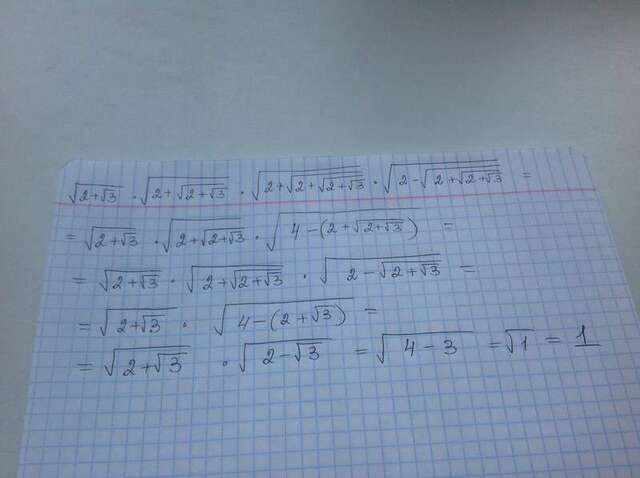 √(2+√3) · √(2+√(2+√3)) · √(2+√(2+√(2+√3))) · √(2-√(2+√(2+√3))) =
= √(2+√3) · √(2+√(2+√3)) · √(4-(2+√(2+√3))) =
= √(2+√3) · √(2+√(2+√3)) · √(2-√(2+√3)) =
= √(2+√3) · √(4-(2+√3)) =
= √(2+√3) · √(2-√3) = √(4-3) = √1 = 1